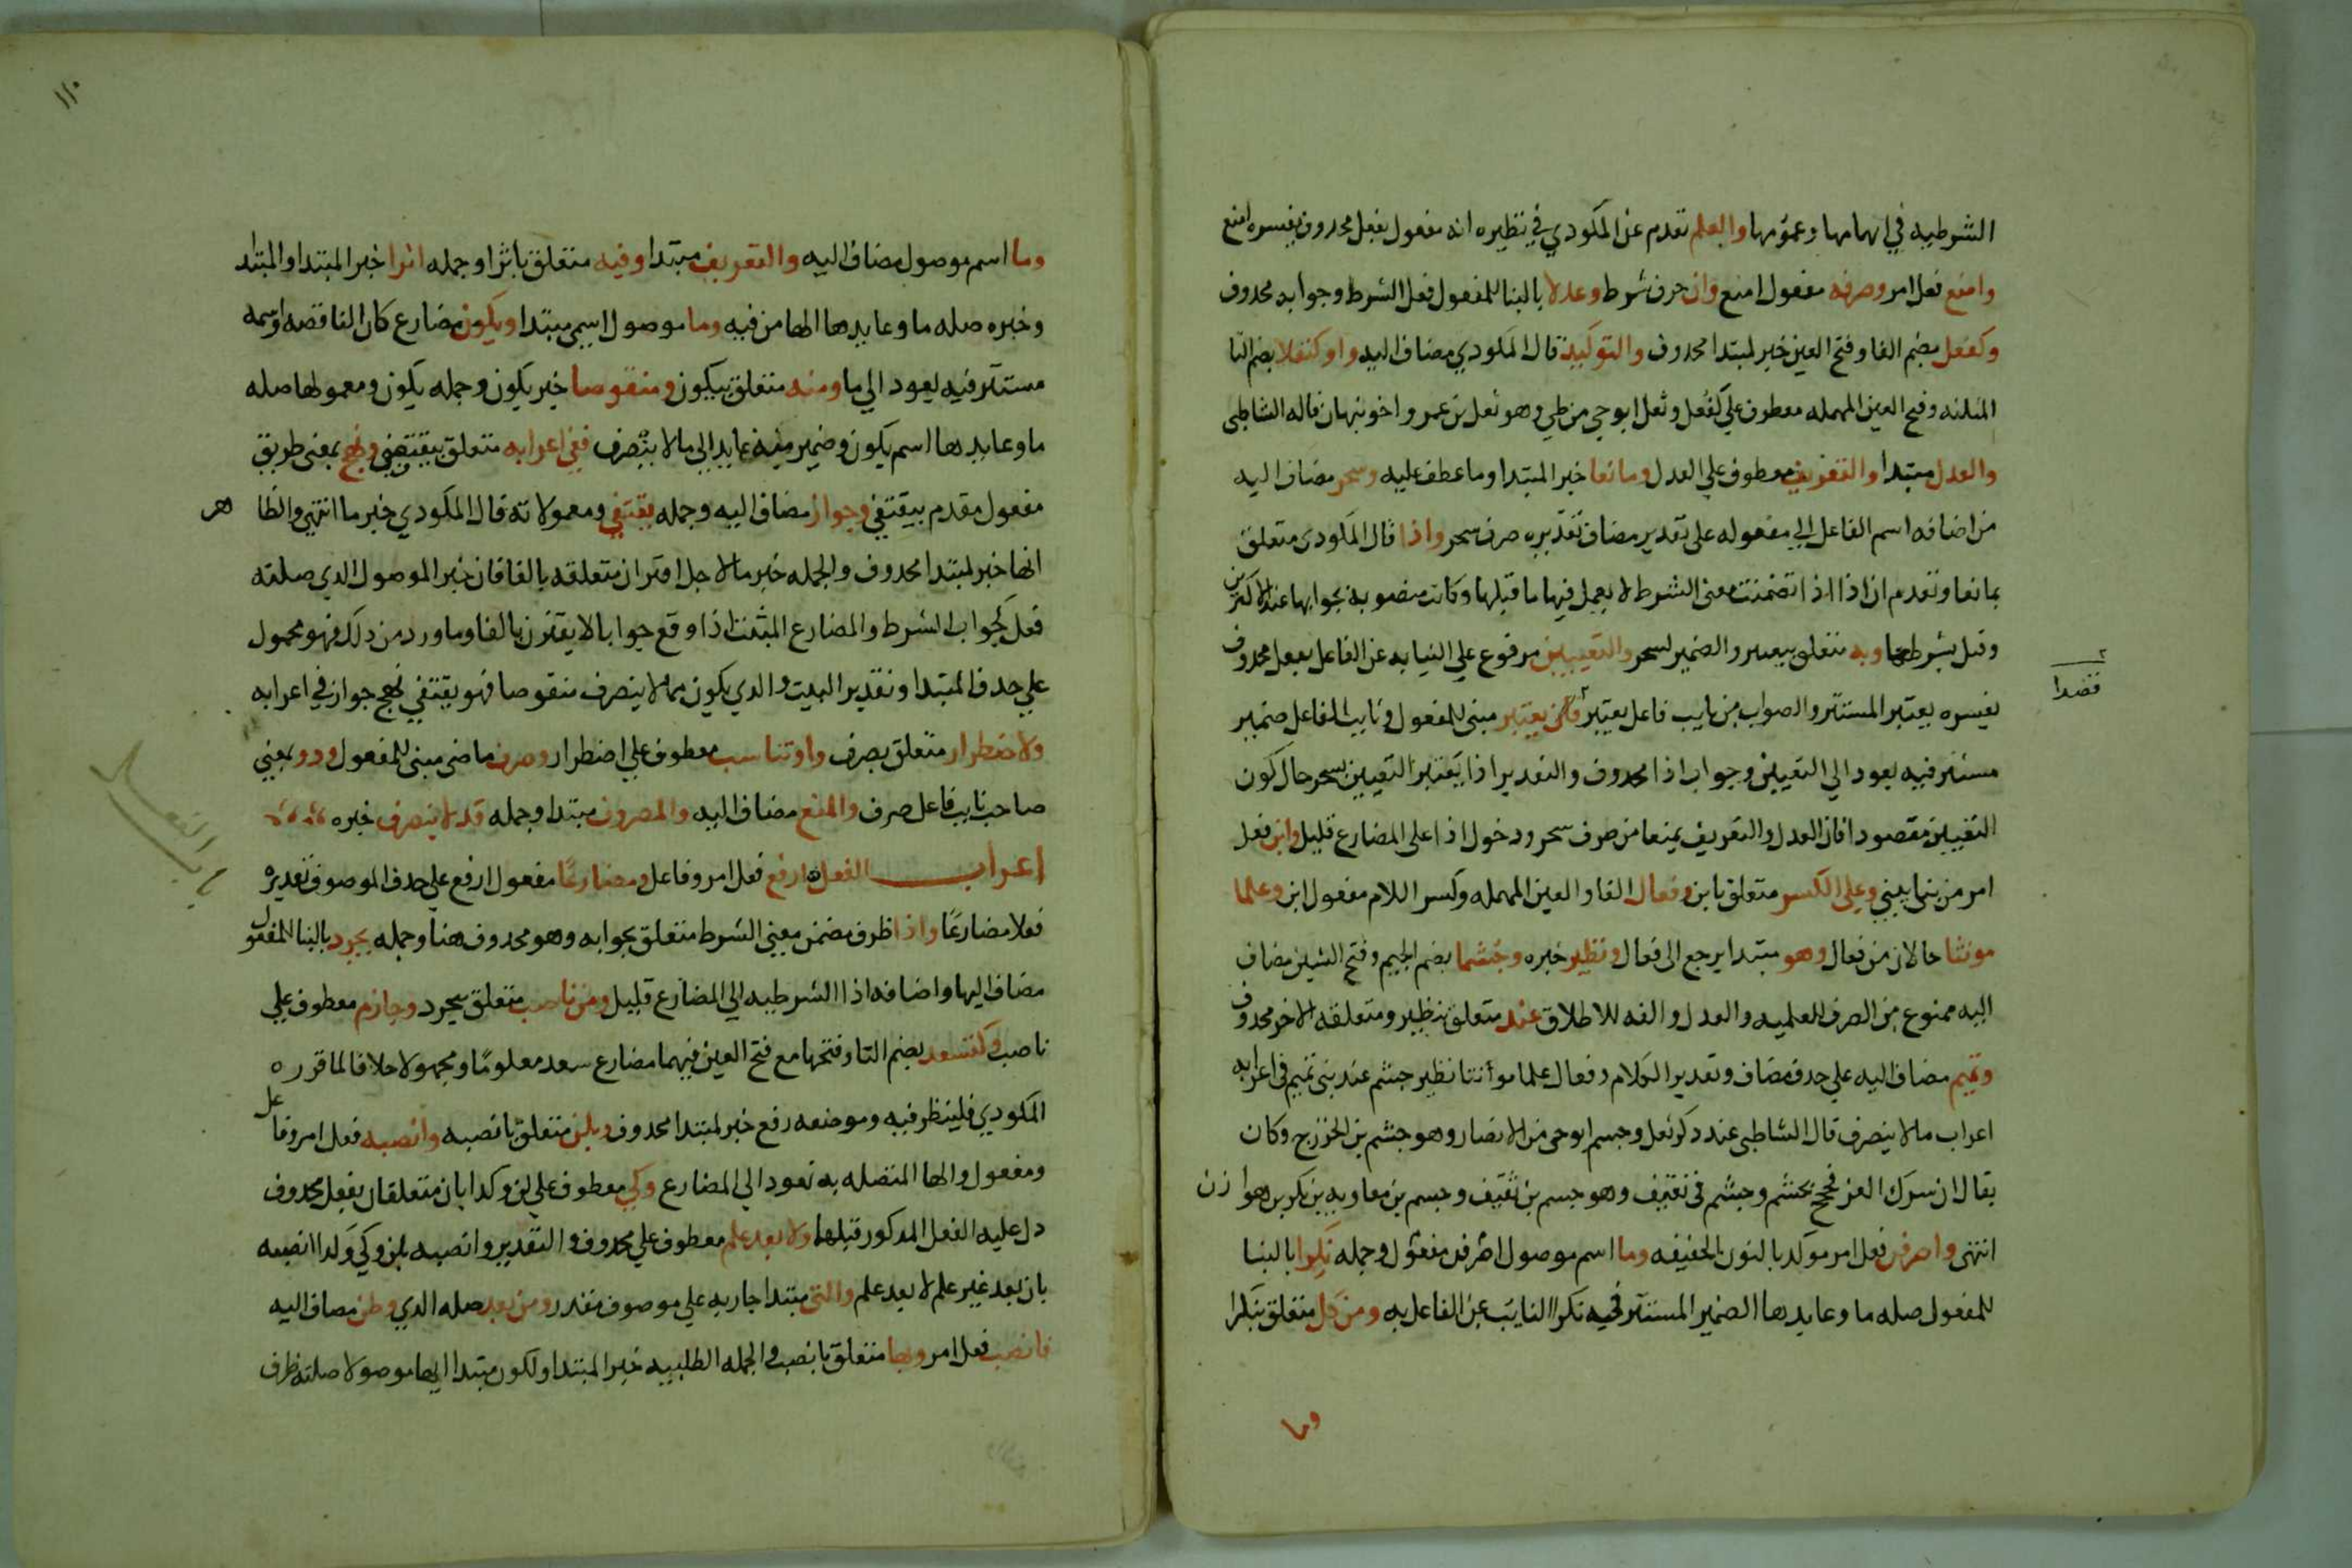 الشرطيه في ابهامها وعمومها والعلم تقدم عن المكودي في نظيره انه مفعول بفعل محدوف يفسره امنع
وامنع فعل امر وصرفه مفعول امنع وان حرف شرط وعدلا بالبنا للمفعول فعل الشرط وجوابه محدوف
وكفعل بضم الفا وفتح العين خبر لمبتدا محدوف والتوكيد قال المكودي مضاف اليه واو كثعلا بضم الثا
المثلثه وفتح العين المهمله معطوف علي كفعل وثعل ابو حي من طي وهو ثعل بن عمرو اخو نبهان قاله الشاطبى
والعدل مبتدا والتعريف معطوف علي العدل ومانعا خبر المبتدا وما عطف عليه وسحر مضاف اليه
من اضافه اسم الفاعل الي مفعوله على تقدير مضاف تقديره صرف سحر واذا قال المكودى متعلق
بمانعا وتقدم ان اذا اذا تضمنت معنى الشرط لا يعمل فيها ما قبلها وكانت منصوبه بجوابها عند الاكثرين
وقيل بشرطها وبه متعلق بيعتبر والضمير لسحر والتعيين مرفوع علي النيابه عن الفاعل بفعل محدوف
يفسره يعتبر المستتر والصواب من نايب فاعل يعتبر يعتبر مبنى للمفعول ونايب الفاعل ضمير
قصدا
مستتر فيه يعود الي التعيين وجواب اذا محدوف والتقدير اذا يعتبر التعيين بسحر حال كون
التعيين مقصودا فان العدل والتعريف يمنعا من صرف سحر ودخول اذا على المضارع قليل وابن فعل
امر من بنى يبني وعلي الكسر متعلق بابن وفعال الفا والعين المهمله وكسر اللام مفعول ابن وعلما
مونثا حالان من فعال وهو مبتدا يرجع الى فعال ونظير خبره وجشما بضم الجيم وفتح الشين مضاف
اليه ممنوع من الصرف للعلميه والعدل والفه للاطلاق عند متعلق بنظير ومتعلقه الاخر محدوف
وتميم مضاف اليه علي حدف مضاف وتقدير الكلام وفعال علما مؤنثا نظير جشم عند بنى تميم فى اعرابه
اعراب مالا ينصرف قال الشاطبى عند دكر ثعل وجسم ابو حى من الانصار وهو جشم بن الخزرج وكان
يقال ان سرك العز فجحجح بجشم وجشم فى ثقيف وهو جسم بن ثقيف وجسم بن معاويه بن بكر بن هوازن
انتهى واصرفن فعل امر موكد بالنون الخفيفه وما اسم موصول اصرفن مفعول وجمله نكرا بالبنا
للمفعول صله ما وعايدها الضمير المستتر فيه نكرا النايب عن الفاعل به ومن كل متعلق بنكرا
وما
١١٠
وما اسم موصول مضاف اليه والتعريف مبتدا وفيه متعلق باثرا وجمله اثرا خبر المبتدا والمبتدا
وخبره صله ما وعايدها الها من فيه وما موصول اسمي مبتدا ويكون مضارع كان الناقصه واسمه
مستتر فيه يعود الي ما ومنه متعلق بيكون ومنقوصا خبر يكون وجمله يكون ومعمولها صله
ما وعايدها اسم يكون وضمير منه عايد الي مالا ينصرف ففي اعرابه متعلق بيقتفي ونهج بمعنى طريق
مفعول مقدم بيقتفي وجوار مضاف اليه وجمله يقتفي ومعمولاته قال المكودي خبر ما انتهي والظاهر
انها خبر لمبتدا محدوف والجمله خبر ما لاجل اقتران متعلقه بالفا فان خبر الموصول الدي صلته
فعل كجواب الشرط والمضارع المثبت اذا وقع جوابا لا يقترن بالفا وما ورد من دلك فهو محمول
علي حدف المبتدا وتقدير البيت والدي يكون مما لا ينصرف منقوصا فهو يقتفي نهج جوار في اعرابه
ولاضطرار متعلق بصرف واو تناسب معطوف علي اضطرار وصرف ماضى مبنى للمفعول ودو بمعني
صاحب نايب فاعل صرف والمنع مضاف اليه والمصروف مبتدا وجمله قد لا ينصرف خبره
اعراب الفعل ارفع فعل امر وفاعل ومضارعًا مفعول ارفع علي حدف الموصوف تقديره
فعلا مضارعًا واذا ظرف مضمن معني الشرط متعلق بجوابه وهو محدوف هنا وجمله يجرد بالبنا للمفعول
مضاف اليها واضافه اذا الشرطيه الي المضارع قليل ومن ناصب متعلق بيجرد وجازم معطوف علي
ناصب وكتسعد بضم التا وفتحها مع فتح العين فيهما مضارع سعد معلومًا ومجهولا خلافا لما قرره
المكودي فلينظر فيه وموضعه رفع خبر لمبتدا محدوف وبلن متعلق بانصبه وانصبه فعل امر وفاعل
ومفعول والها المتصله به تعود الي المضارع وكي معطوف علي لن وكدا بان متعلقان بفعل محدوف
دل عليه الفعل المدكور قبلها ولا بعد علم معطوف علي محدوف والتقدير وانصبه بلن وكي وكدا انصبه
بان بعد غير علم لا بعد علم والتى مبتدا جاريه علي موصوف مقدر ومن بعد صله الدي وظن مضاف اليه
فانصب فعل امر وبها متعلق بانصب والجمله الطلبيه خبر المبتدا ولكون مبتدا ايها موصولا صلته ظرف